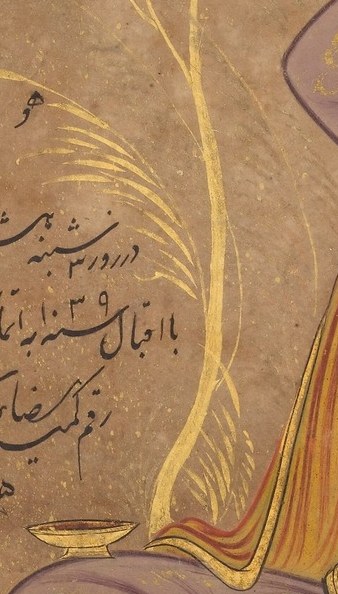 هو
در روز ۳ شنبه هش
با اقبال سنه ۱۰۳۹ به اتما
رقم کمینه رضا